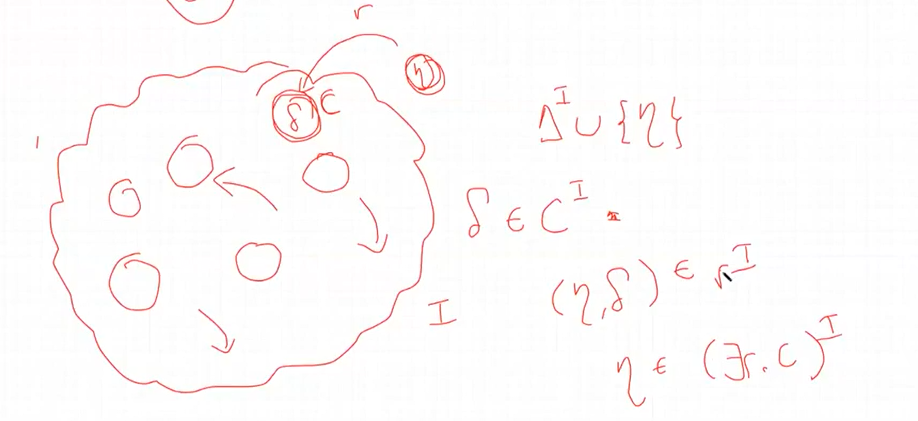 r
η
δ C
Δ^I ∪ {η}
δ ∈ C^I
(η,δ) ∈ r^I
I
η ∈ (∃r.C)^I